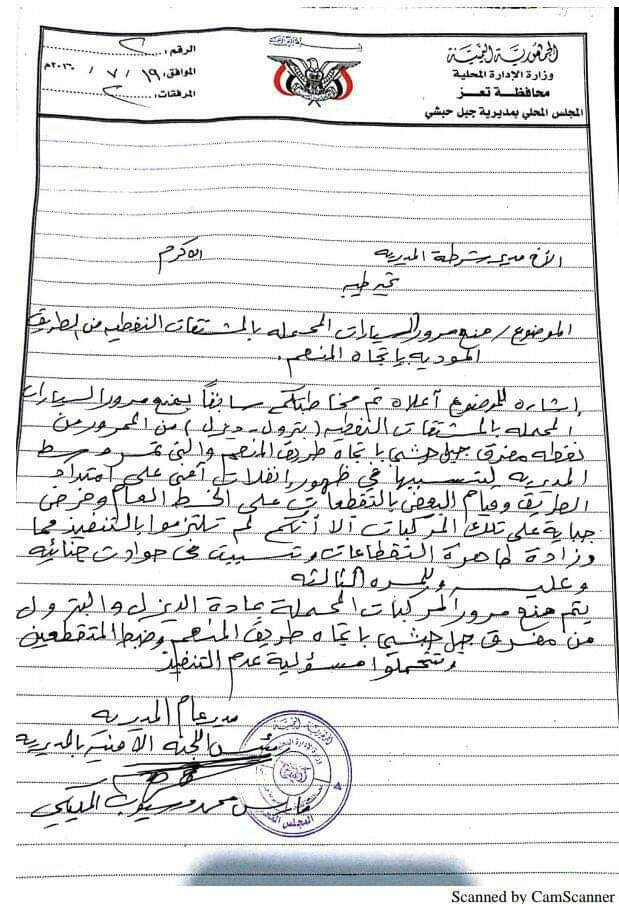 الجمهورية اليمنية
وزارة الإدارة المحلية
محافظة تعز
المجلس المحلي بمديرية جبل حبشي
الرقم:
الموافق: ١٩ / ٧ / ٢٠٢٠م
المرفقات:
الأخ مدير شرطة المديرية الاكرم
تحية طيبه
الموضوع / منع مرور السيارات المحمله بالمشتقات النفطيه من الطريق
الموديه بإتجاه المنعم.
إشاره للموضوع أعلاه تم مخاطبتكم سابقاً بمنع مرور السيارات
المحمله بالمشتقات النفطيه (بترول - ديزل) من المرور من
نقطه مفرق جبل حبشي باتجاه طريق المنعم والتي تمر وسط
المديريه لتسببها في ظهور إنفلات أمني على امتداد
الطريق وقيام البعض بالتقطعات على الخط العام وفرض
جباية على تلك المركبات الا أنكم لم تلتزموا بالتنفيذ مما
وزادة ظاهرة التقطاعات وتسببت في حوادث جنائيه
وعليه وللمره الثالثه
يتم منع مرور المركبات المحملة بمادة الديزل والبترول
من مفرق جبل حبشي باتجاه طريق المنعم وضبط المتقطعين
وتتحملوا مسؤلية عدم التنفيذ
مدير عام المديريه
رئيس اللجنه الامنية بالمديريه
فارس محمد المليكي
الجمهورية اليمنية
المجلس المحلي
Scanned by CamScanner